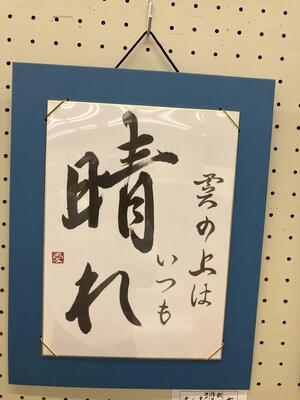 雲の上は
いつも
晴れ